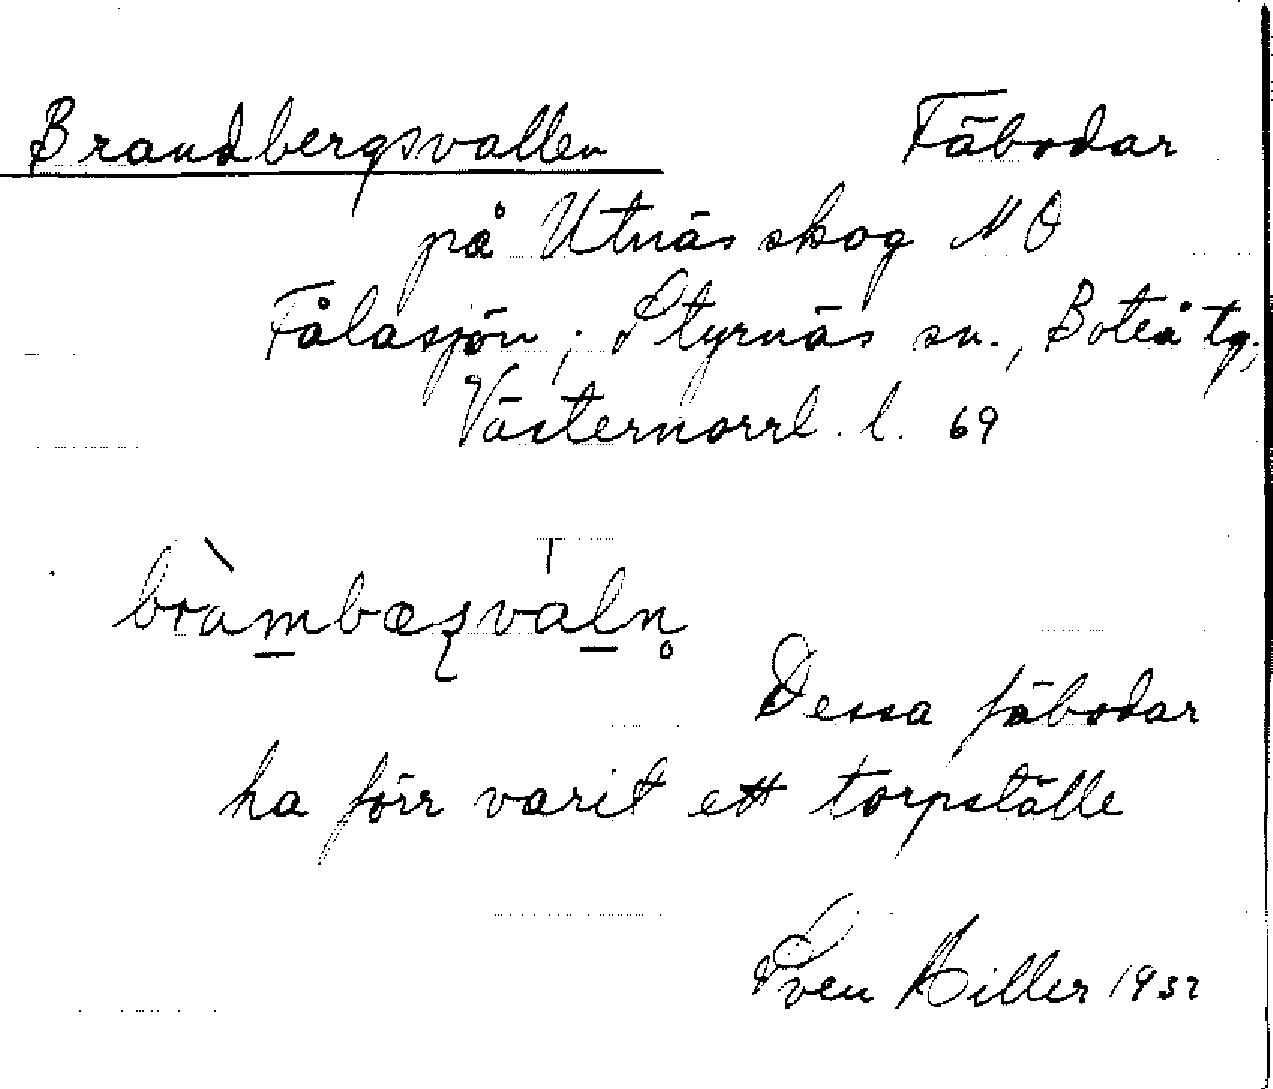 Brandbergsvallen Fäbodar
på Utnäs skog NO
Fålasjön, Styrnäs sn., Boteå tg,
Västernorrl. l. 69
Dessa fäbodar
ha förr varit ett torpställe
Sven Hiller 1932